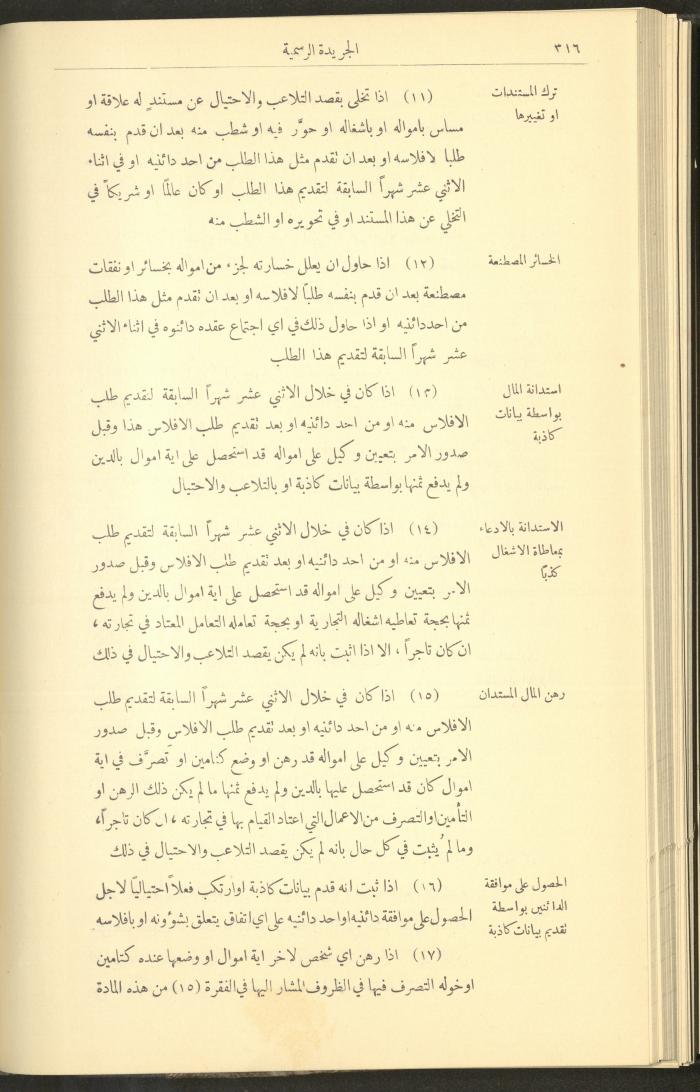 ٣١٦
الجريدة الرسمية
ترك المستندات
او تغييرها
(١١) اذا تخلى بقصد التلاعب والاحتيال عن مستندٍ له علاقة او
مساس بامواله او باشغاله او حوَّر فيه او شطب منه بعد ان قدم بنفسه
طلبا لافلاسه او بعد ان تقدم مثل هذا الطلب من احد دائنيه او في اثناء
الاثني عشر شهراً السابقة لتقديم هذا الطلب او كان عالماً او شريكاً في
التخلي عن هذا المستند او في تحويره او الشطب منه
الخسائر المصطنعة
(١٢) اذا حاول ان يعلل خسارته لجزء من امواله بخسائر او نفقات
مصطنعة بعد ان قدم بنفسه طلباً لافلاسه او بعد ان تقدم مثل هذا الطلب
من احد دائنيه او اذا حاول ذلك في اي اجتماع عقده دائنوه في اثناء الاثني
عشر شهراً السابقة لتقديم هذا الطلب
استدانة المال
بواسطة بيانات
كاذبة
(١٣) اذا كان في خلال الاثني عشر شهراً السابقة لتقديم طلب
الافلاس منه او من احد دائنيه او بعد تقديم طلب الافلاس هذا وقبل
صدور الامر بتعيين وكيل على امواله قد استحصل على اية اموال بالدين
ولم يدفع ثمنها بواسطة بيانات كاذبة او بالتلاعب والاحتيال
الاستدانة بالادعاء
بمماطاة الاشغال
كذباً
(١٤) اذا كان في خلال الاثني عشر شهراً السابقة لتقديم طلب
الافلاس منه او من احد دائنيه او بعد تقديم طلب الافلاس وقبل صدور
الامر بتعيين وكيل على امواله قد استحصل على اية اموال بالدين ولم يدفع
ثمنها بحجة تعاطيه اشغاله التجارية او بحجة تعامله التعامل المعتاد في تجارته ،
ان كان تاجراً ، الا اذا اثبت بانه لم يكن يقصد التلاعب والاحتيال في ذلك
رهن المال المستدان
(١٥) اذا كان في خلال الاثني عشر شهراً السابقة لتقديم طلب
الافلاس منه او من احد دائنيه او بعد تقديم طلب الافلاس وقبل صدور
الامر بتعيين وكيل على امواله قد رهن او وضع كتامين او تصرَّف في اية
اموال كان قد استحصل عليها بالدين ولم يدفع ثمنها ما لم يكن ذلك الرهن او
التأمين او التصرف من الاعمال التي اعتاد القيام بها في تجارته ، ان كان تاجراً،
وما لم يُثبت في كل حال بانه لم يكن يقصد التلاعب والاحتيال في ذلك
الحصول على موافقة
الدائنين بواسطة
تقديم بيانات كاذبة
(١٦) اذا ثبت انه قدم بيانات كاذبة او ارتكب فعلاً احتيالياً لاجل
الحصول على موافقة دائنيه او احد دائنيه على اي اتفاق يتعلق بشؤونه او بافلاسه
(١٧) اذا رهن اي شخص لاخر اية اموال او وضعها عنده كتامين
او خوله التصرف فيها في الظروف المشار اليها في الفقرة (١٥) من هذه المادة